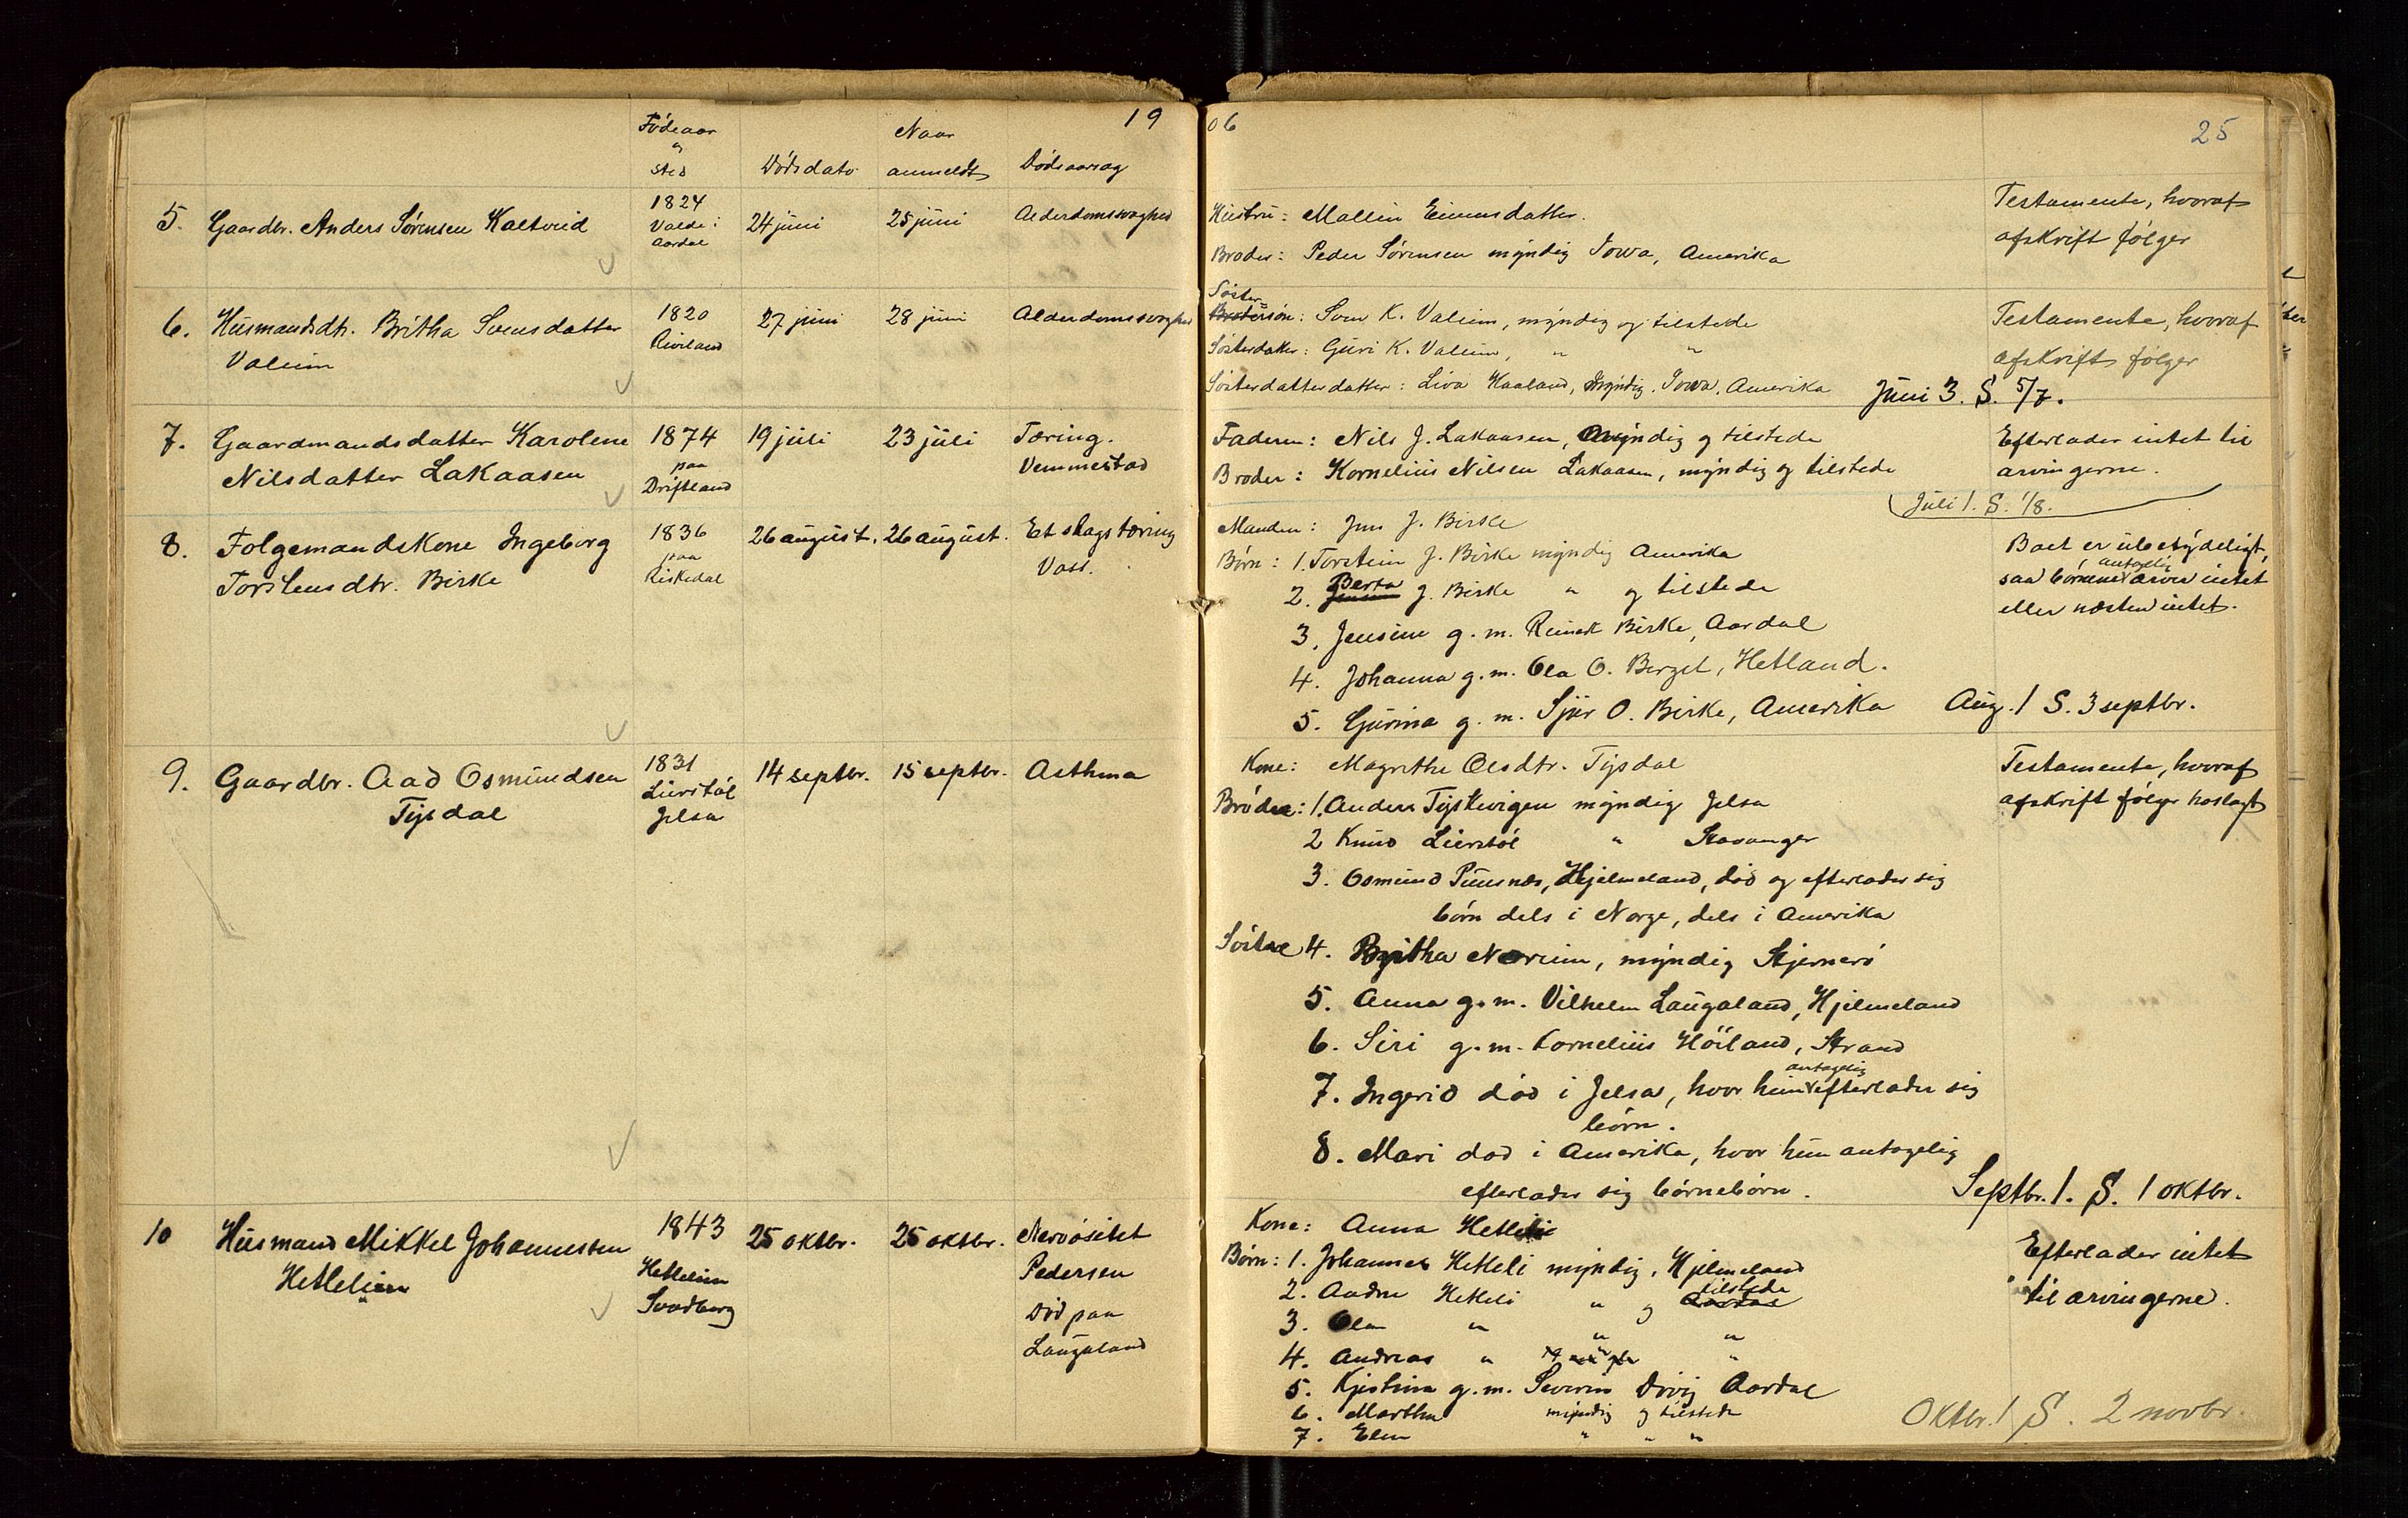 19
06
25
Födeaar
og
sted
Dödsdato
Naar
anmeldt
Dödsaarsag
5. Gaardbr. Anders Sörensen Kaltveid
1824
Valde i
Aardal
24 juni
25 juni
Alderdomssvaghed
Hustru: Mallin Einersdatter.
Broder: Peder Sörensen myndig Iowa, Amerika
Testamente, hvoraf
afskrift fölger
6. Husmandsdtr. Britha Svensdatter
Valeim
1820
27 juni
28 juni
Alderdomssvaghed
Söster
Brodersön: Sven K. Valeim, myndig og tilstede
Sösterdatter: Guri K. Valeim, " "
Sösterdatterdatter: Liva Kaaland, myndig. Iowa, Amerika
Testamente, hvoraf
afskrift fölger
Juni 3. S. 5/7.
7. Gaardmandsdatter Karolene
Nilsdatter Lakaasen
1874
paa
Driftland
19 juli
23 juli
Tæring.
Vemmestad
Faderen: Nils J. Lakaasen, myndig og tilstede
Broder: Kornelius Nilsen Lakaasen, myndig og tilstede
Efterlader intet til
arvingerne.
Juli 1. S. 1/8.
8. Folgemandskone Ingeborg
Torstensdtr. Birke
1836
paa
Riskedal
26 august.
26 august.
Et slags tæring
Vast.
Manden: Jens J. Birke
Börn: 1. Torstein J. Birke myndig Amerika
2. Berta J. Birke " og tilstede
3. Jensine g. m. Reinert Birke, Aardal
4. Johanna g. m. Ola O. Berget, Hetland.
5. Gurina g. m. Sjur O. Birke, Amerika
Boet er ubetydeligt,
saa börnene antagelig arver intet
eller næsten intet.
Aug. 1 S. 3 septbr.
9. Gaardbr. Aad Osmundsen
Tysdal
1831
Lierstöl
Jelsa
14 septbr.
15 septbr.
Asthma
Kone: Magrethe Olsdtr. Tysdal
Brödre: 1. Anders Tystvigen myndig Jelsa
2 Knud Lierstöl " Stavanger
3. Osmund Puusnes, Hjelmeland, död og efterlader sig
börn dels i Norge, dels i Amerika
Söstre 4. Britha Nereim, myndig Stjernerö
5. Anna g. m. Vilhelm Laugaland, Hjelmeland
6. Siri g. m. Kornelius Höiland, Strand
7. Ingerid död i Jelsa, hvor hun antagelig efterlader sig
börn.
8. Mari död i Amerika, hvor hun antagelig
efterlader sig börnebörn.
Testamente, hvoraf
afskrift fölger hoslagt
Septbr. 1. S. 1 oktbr.
10 Husmand Mikkel Johannessen
Hetlelien
1843
Hetlelien
Svadberg
25 oktbr.
25 oktbr.
Nervösitet
Pedersen
Död paa
Laugaland
Kone: Anna Hetleli
Börn: 1. Johannes Hetleli myndig, Hjelmeland
2. Andre Hetleli " og tilstede
3. Ola " " "
4. Andreas " " "
5. Kjistina g. m. Severin Dövig Aardal
6. Martha myndig og tilstede
7. Elen " " "
Efterlader intet
til arvingerne.
Oktbr. 1 S. 2 novbr.